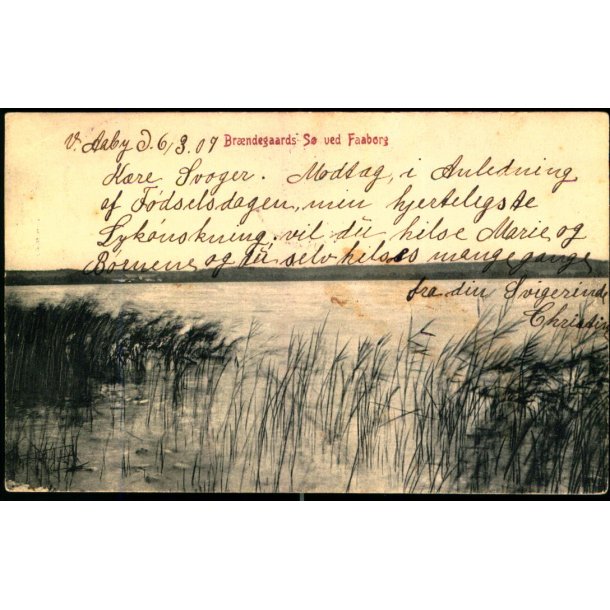 V. Aaby D. 6/3. 07 Brændegaards Sø ved Faaborg
Kære Svoger. Modtag, i Anledning
af Fødselsdagen, min hjerteligste
Lykønskning, vil du hilse Marie og
Børnene og du selv hilses mange gange
fra din Svigerind